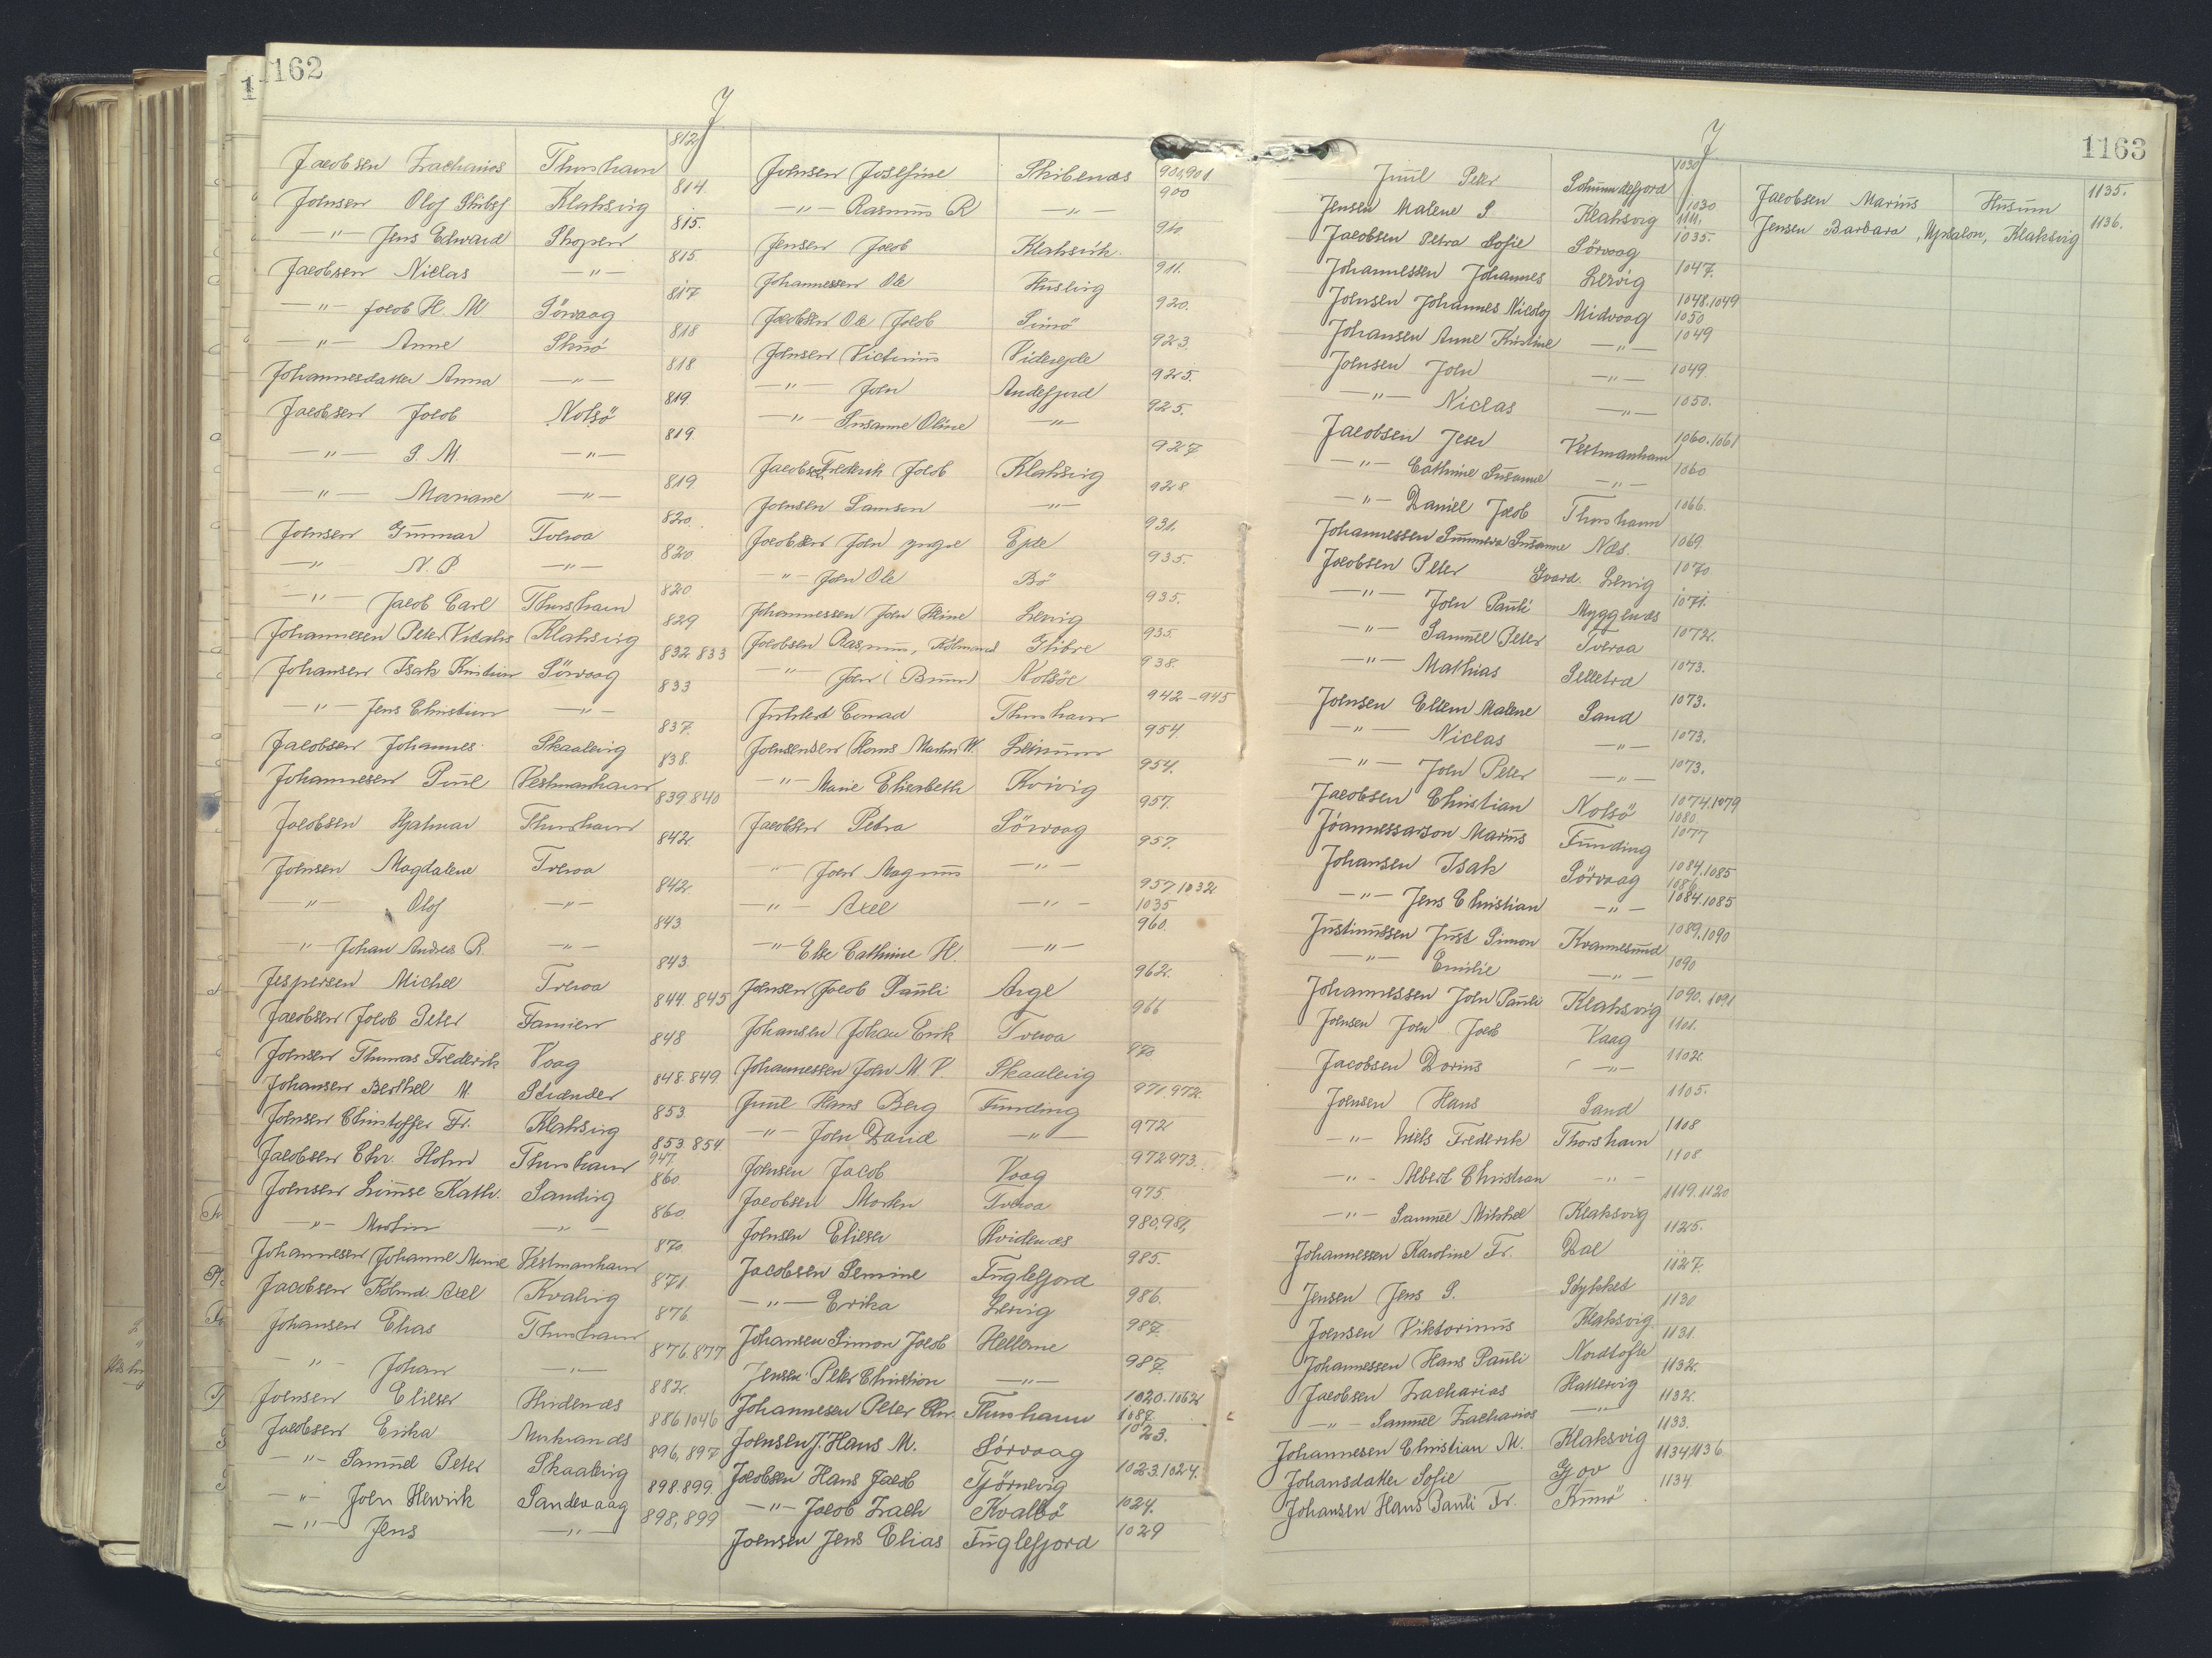 1162
J
Jacobsen Zacharias Thorshavn 812
Joensen Olof Skibsf Klaksvig 814.
—"— Jens Edward Skopen 815.
Jacobsen Niclas —"— 815
—"— Jacob H. M Sörvaag 817
—"— Anne Skuö 818
Johannesdatter Anna —"— 818
Jacobsen Jacob Nolsö 819.
—"— S. M. —"— 819.
—"— Mariane —"— 819.
Joensen Gunnar Tveraa 820.
—"— N. P —"— 820
—"— Jacob Carl Thorshavn 820
Johannesen Peter Vitalis Klaksvig 829
Johansen Isak Kristian Sörvaag 832 833
—"— Jens Christian —"— 833
Jacobsen Johannes Skaalevig 837.
Johannesen Poul Vestmanhavn 838.
Jacobsen Hjalmar Thorshavn 839 840
Joensen Magdalene Tveraa 842.
—"— Olof —"— 842
—"— Johan Andreas R. —"— 843.
Jespersen Michel Tveraa 843
Jacobsen Jacob Peter Famien 844. 845
Joensen Thomas Frederik Vaag 848
Johansen Berthel M. 848. 849
Joensen Christoffer Fr. Klaksvig 853.
Jacobsen Chr. Holm Thorshavn 853. 854 947.
Joensen Kath. Sandvig 860
—"— Martin —"— 860
Johannesen Johanne Marie Vestmanhavn 870.
Jacobsen Kölmd. Axel Kvalvig 871.
Johansen Elias Thorshavn 876.
—"— Johan —"— 876. 877
Joensen Elieser Hvidenæs 882.
Jacobsen Erika 886 1046
—"— Samuel Peter Skaalevig 896, 897
—"— Joen Henrik Sandevaag 898. 899.
—"— Jens —"— 898, 899
Joensen Josefine Skibenæs 900, 901
—"— Rasmus R —"— 900
Jensen Jacob Klaksvik. 910
Johannessen Ole Husevig 911.
Jacobsen Ole Jacob Svinö 920.
Joensen Victorius Viderejde 923.
—"— Joen Andefjord 925.
—"— Susanne Oline —"— 925.
Jacobsen Frederik Jacob Klaksvig 927
Joensen Samson —"— 928
Jacobsen Joen yngre Ejde 931.
—"— Joen Ole Bö 935.
Johannessen Joen Heine Lervig 935.
Jacobsen Rasmus, Kölmand Glibre 935.
—"— Joen (Brun) Nolsöe 938.
Conrad Thorshavn 942 – 945
Joensensen Hans Martin W. Leinum 954.
—"— Marie Elisabeth Kvivig 954.
Jacobsen Petra Sörvaag 957.
—"— Joen Magnus —"— 957.
—"— Axel —"— 957 1032 1035
—"— Else Cathrine H. —"— 960.
Joensen Jacob Pauli Arge 962.
Johansen Johan Erik Tveraa 966
Johannessen Joen M. P. Skaalevig 970
Juul Hans Berg Funding 971. 972.
—"— Joen David —"— 972
Joensen Jacob Vaag 972 973.
Jacobsen Morten Tveraa 975.
Joensen Elieser Hvidenæs 980, 981,
Jacobsen Semine Fuglefjord 985.
—"— Erika Lervig 986.
Johansen Simon Jacob Hellerne 987.
Jensen Peter Christian —"— 987.
Johannesen Peter Chr. Thorshavn 1020. 1062 1087.
Joensen J. Hans M. Sörvaag 1023.
Jacobsen Hans Jacob Tjörnevig 1023. 1024.
—"— Jacob Zach Kvalbö 1024.
Joensen Jens Elias Fuglefjord 1029
1163
J
Juul Peter 1030
Jensen Malene S Klaksvig 1030 1111.
Jacobsen Petra Sofie Sörvaag 1035.
Johannessen Johannes Lervig 1047.
Joensen Johannes Nicolaj Midvaag 1048. 1049 1050
Johansen Anne Kristine —"— 1049
Joensen Joen —"— 1049
—"— Niclas —"— 1050.
Jacobsen Jeser Vestmanhavn 1060. 1061
—"— Cathrine Susanne —"— 1060
—"— Daniel Jacob Thorshavn 1066.
Johannessen Sunneva Susanne Næs. 1069
Jacobsen Peter Gvard. Lervig 1070
—"— Joen Pauli Myggenæs 1071.
—"— Samuel Peter Tveraa 1072.
—"— Mathias Selletræ 1073.
Joensen Ellen Malene Sand 1073.
—"— Niclas —"— 1073.
—"— Joen Peter —"— 1073.
Jacobsen Christian Nolsö 1074, 1079 1080
Jóannessarson Marius Funding 1077
Johansen Isak Sörvaag 1084. 1085 1086.
—"— Jens Christian —"— 1084. 1085
Justinussen Just Simon Kvannesund 1089, 1090
—"— Emilie —"— 1090
Johannessen Joen Pauli Klaksvig 1090. 1091
Joensen Joen Jacob Vaag 1101.
Jacobsen Dorius —"— 1102
Joensen Hans Sand 1105.
—"— Niels Frederik Thorshavn 1108
—"— Albert Christian —"— 1108
—"— Samuel Mikkel Klaksvig 1119. 1120
Johannessen Karoline Fr. Dal 1125.
Jensen Jens S. Stykket 1127.
Joensen Viktorinus Klaksvig. 1130
Johannessen Hans Pauli Nordtofte 1131.
Jacobsen Zacharias Hattervig 1132.
—"— Samuel Zacharias —"— 1132.
Johannesen Christian M. Klaksvig 1133.
Johansdatter Sofie Gjov 1134, 1136.
Johansen Hans Pauli Fr. Kunö 1134
Jacobsen Marius Husum 1135.
Jensen Barbara, Upsalon, Klaksvig 1136.